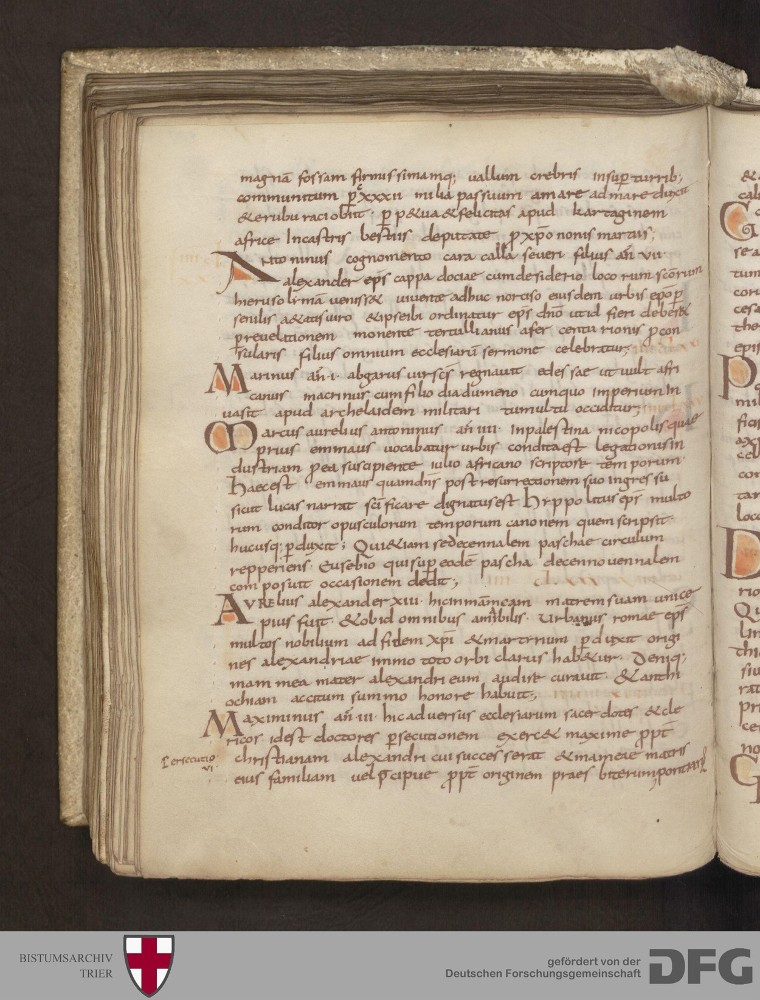 magnā fossam firmissimamq; uallum crebris insup turrib;
communitum p cxxxii milia passuum amare ad mare duxit
& erubu raci obiit · p p&ua & felicitas apud kartaginem
africe In castris bestiis deputate p xpo nonis martiis;
Antoninus cognomento cara calla seueri filius añ vii
alexander eps cappadociae cum desiderio locorum scōrum
hierusolimā veniss& uiuente adhuc narciso eiusdem urbis epō p
senilis aetatis uiro & ipse ibi ordinatur eps dnō ut id fieri deber&
p reuelationem monente tertullianus afer centurionis pcon
sularis filius omnium ecclesiarū sermone celebratur;
Marinus añ · i · abgarus uir scs regnauit edessae ut uult afri
canus macrinus cum filio diadumeno cum quo imperium In
uasit apud archelaidem militari tumultu occiditur;
Marcus aurelius antoninus añ iiii In palestina nicopolis quae
prius emmaus uocabatur urbis condita est legationis in
dustriam p ea suscipiente iulio africano scriptore temporum
haec est emmaus quam dns post resurrectionem suo ingressu
sicut lucas narrat scīficare dignatus est hyppolitus eps multo
rum conditor opusculorum temporum canonem quem scripsit
hucusq; pduxit; Qui &iam sedecennalem paschae circulum
repperiens eusebio qui sup eodē pascha decennouennalem
composuit occasionem dedit;
AVRelius alexander xiii hic in māmeam matrem suam unice
pius fuit & ob id omnibus amabilis urbanus romae eps
multos nobilium ad fidem xpi & martirium pduxit origi
nes alexandriae immo toto orbi clarus hab&ur · Deniq;
mammea mater alexandri eum audire curauit & anthi
ochiam accitum summo honore habuit;
Maximinus añ iii hic aduersus ecclesiarum sacerdotes & cle
ricos id est doctores psecutionem exerc& maxime ppt
christianam alexandri cui successerat & mameae matris
Persecutio vi
eius familiam uel pcipue ppt originem praesbiterum
BISTUMSARCHIV
TRIER
gefördert von der
Deutschen Forschungsgemeinschaft
DFG